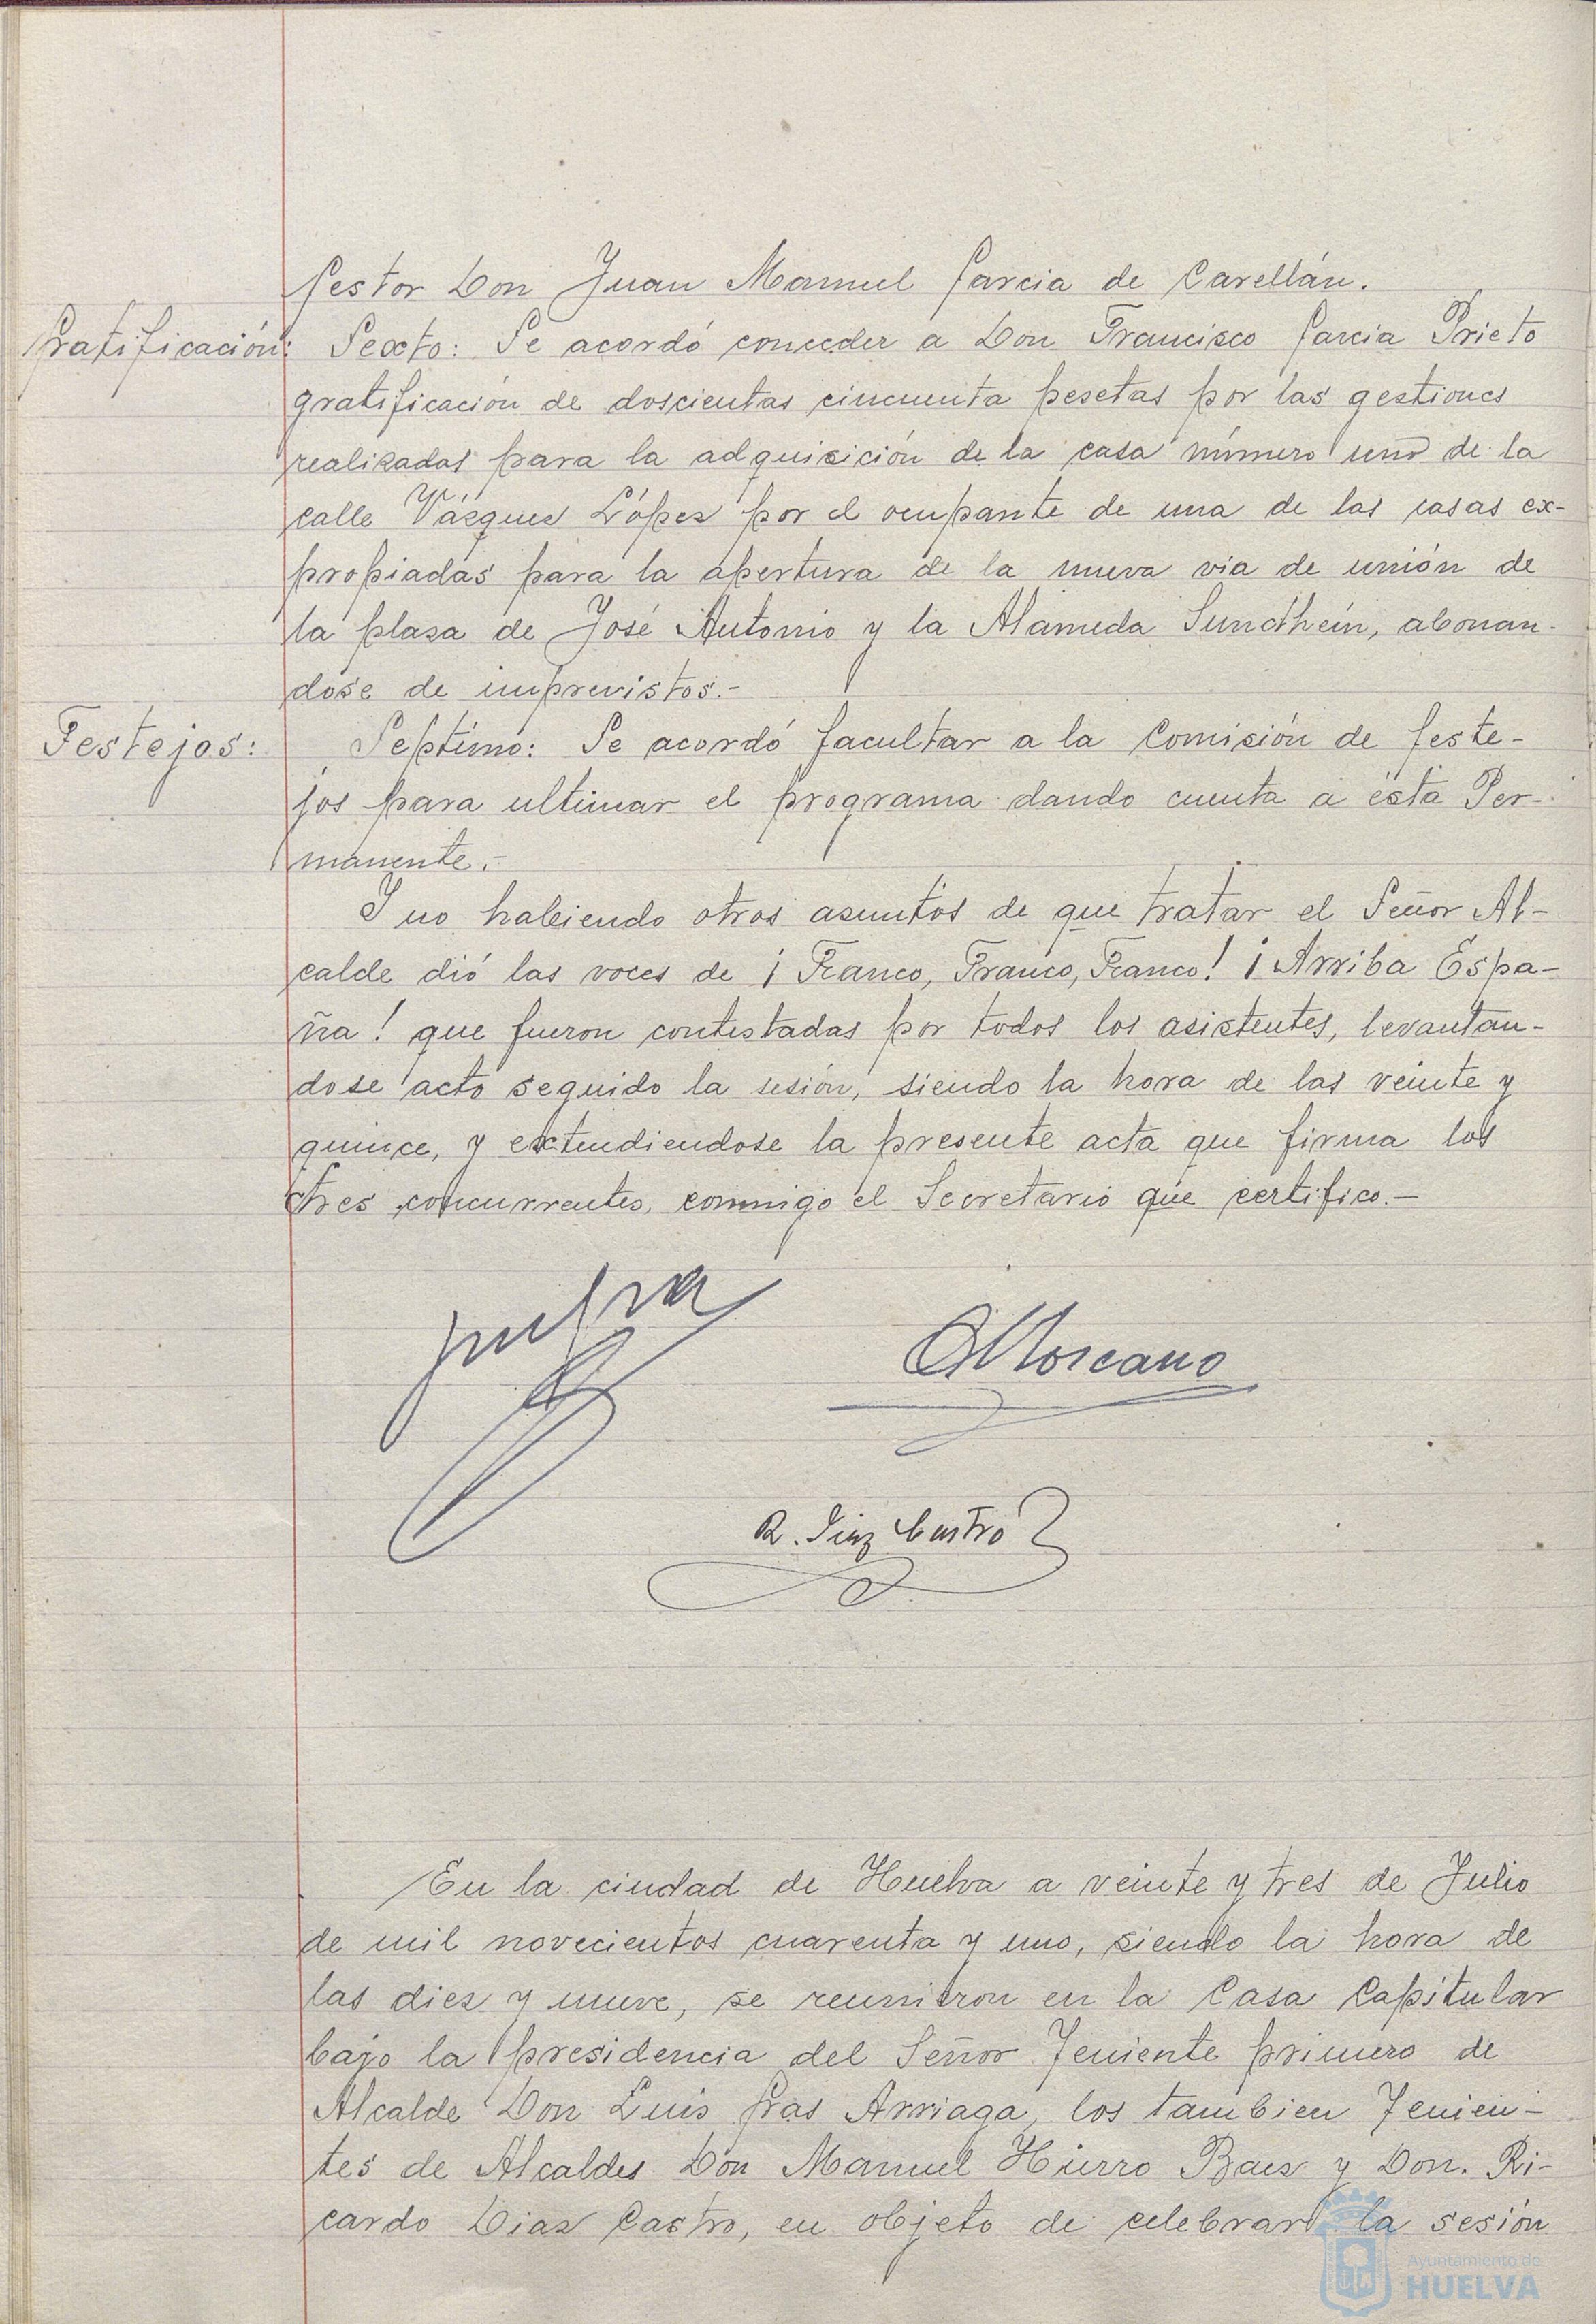 Gestor Don Juan Manuel Garcia de Carellán.
Gratificación: Sexto: Se acordó conceder a Don Francisco Garcia Prieto
gratificación de doscientas cincuenta pesetas por las gestiones
realizadas para la adquisición de la casa número uno de la
calle Vázquez López por el ocupante de una de las casas ex-
propiadas para la apertura de la nueva via de unión de
la plaza de José Antonio y la Alameda Sundhein, abonan-
dose de imprevistos.-
Festejos: Septimo: Se acordó facultar a la Comisión de feste-
jos para ultimar el programa dando cuenta a ésta Per-
manente.-
Y no habiendo otros asuntos de que tratar el Señor Al-
calde dió las voces de ¡Franco, Franco, Franco! ¡Arriba Espa-
ña! que fueron contestadas por todos los asistentes, levantan-
dose acto seguido la sesión, siendo la hora de las veinte y
quince, y extendiendose la presente acta que firma los
tres concurrentes, conmigo el Secretario que certifico.-
Moreano
R. Diaz Castro
En la ciudad de Huelva a veinte y tres de Julio
de mil novecientos cuarenta y uno, siendo la hora de
las diez y nueve, se reunieron en la Casa Capitular
bajo la presidencia del Señor Teniente primero de
Alcalde Don Luis Gras Arriaga, los tambien Tenien-
tes de Alcaldes Don Manuel Hierro Baez y Don. Ri-
cardo Diaz Castro, en objeto de celebrar la sesión
Ayuntamiento de
HUELVA